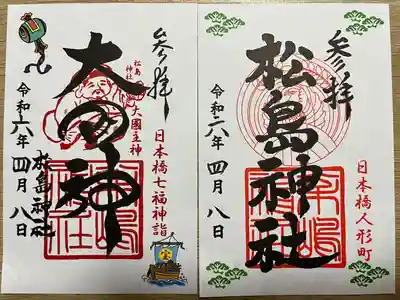 参拝
松島神社
日本橋人形町
令和六年四月八日
参拝
大国神
松島神社
大國主神
日本橋七福神詣
令和六年四月八日
松島神社